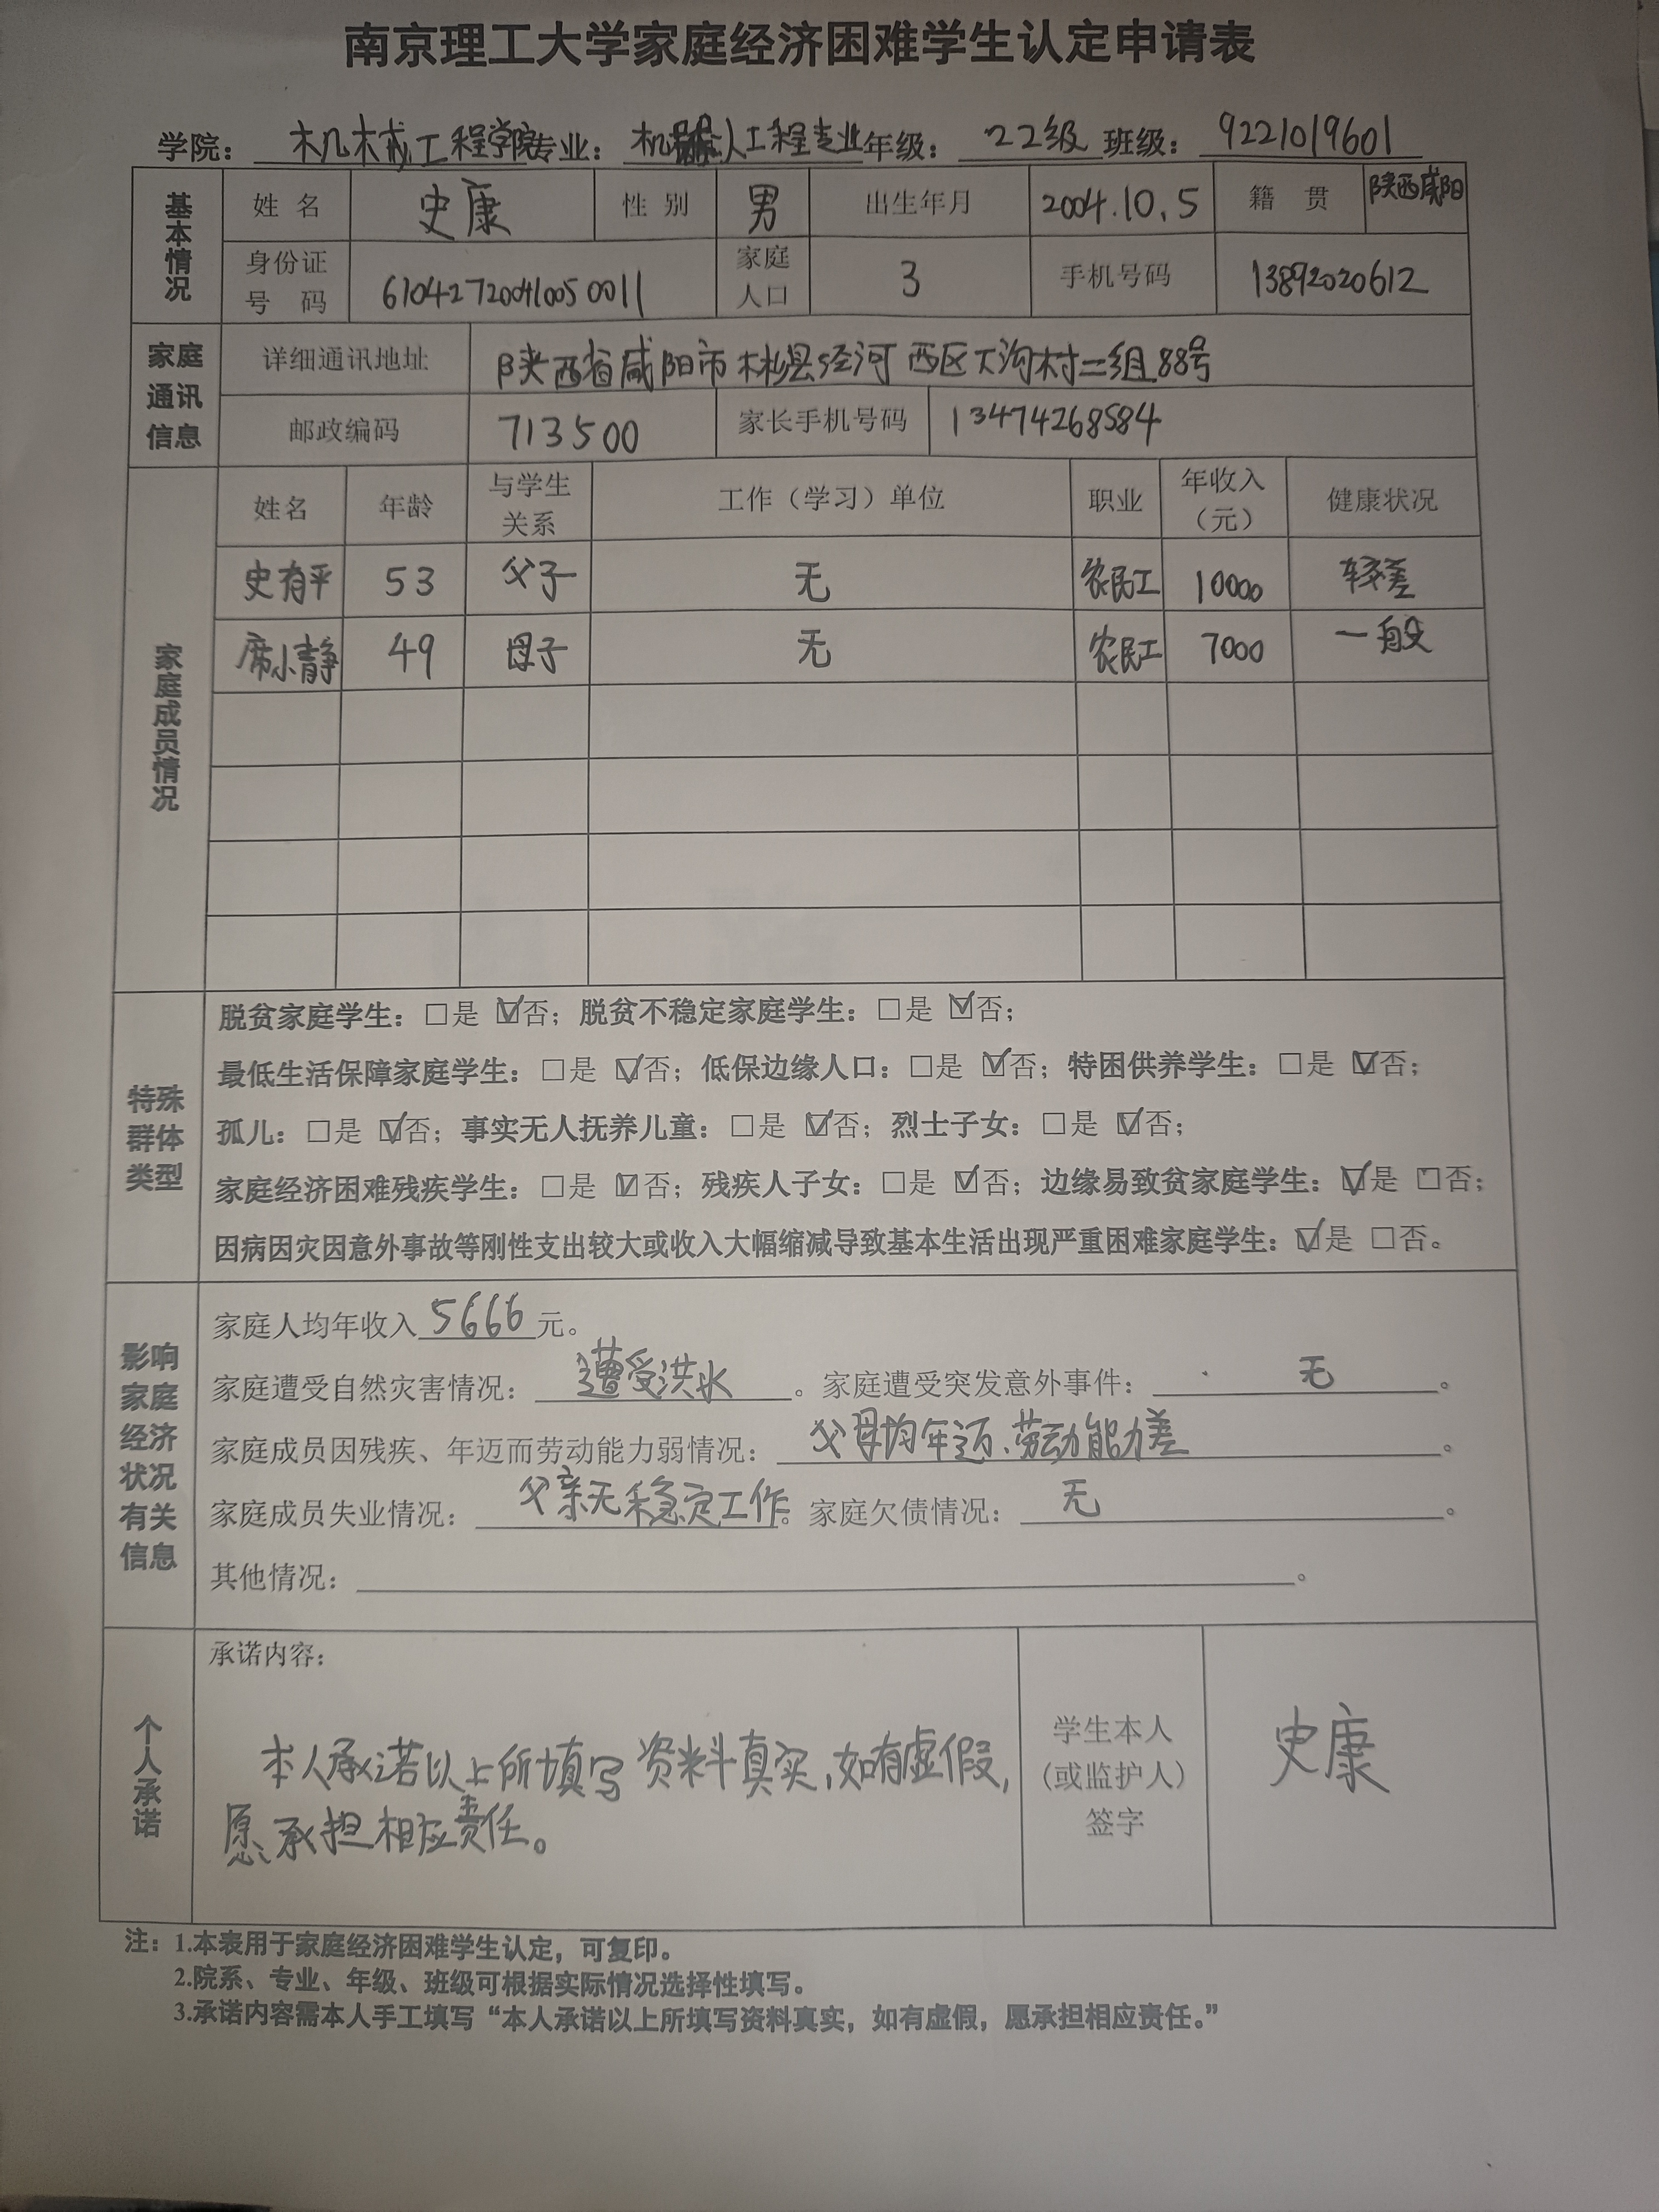 南京理工大学家庭经济困难学生认定申请表
学院：机械工程学院 专业：机器人工程专业 年级：22级 班级：9221019601
基本情况 姓名 史康 性别 男 出生年月 2004.10.5 籍贯 陕西咸阳
身份证号码 610427200410050011 家庭人口 3 手机号码 13892020612
家庭通讯信息 详细通讯地址 陕西省咸阳市彬县泾河西区大沟村二组88号
邮政编码 713500 家长手机号码 13474268584
家庭成员情况 姓名 年龄 与学生关系 工作（学习）单位 职业 年收入（元） 健康状况
史有平 53 父子 无 农民工 10000 较差
席小静 49 母子 无 农民工 7000 一般
特殊群体类型
脱贫家庭学生：□是 ☑否；脱贫不稳定家庭学生：□是 ☑否；
最低生活保障家庭学生：□是 ☑否；低保边缘人口：□是 ☑否；特困供养学生：□是 ☑否；
孤儿：□是 ☑否；事实无人抚养儿童：□是 ☑否；烈士子女：□是 ☑否；
家庭经济困难残疾学生：□是 ☑否；残疾人子女：□是 ☑否；边缘易致贫家庭学生：☑是 □否；
因病因灾因意外事故等刚性支出较大或收入大幅缩减导致基本生活出现严重困难家庭学生：☑是 □否。
影响家庭经济状况有关信息
家庭人均年收入5666元。
家庭遭受自然灾害情况：遭受洪水。家庭遭受突发意外事件：无。
家庭成员因残疾、年迈而劳动能力弱情况：父母均年迈、劳动能力差。
家庭成员失业情况：父亲无稳定工作。家庭欠债情况：无。
其他情况：。
个人承诺
承诺内容：
本人承诺以上所填写资料真实，如有虚假，
愿承担相应责任。
学生本人
（或监护人）
签字
史康
注：1.本表用于家庭经济困难学生认定，可复印。
2.院系、专业、年级、班级可根据实际情况选择性填写。
3.承诺内容需本人手工填写“本人承诺以上所填写资料真实，如有虚假，愿承担相应责任。”